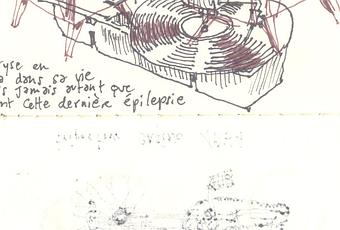 yse en
a dans sa vie
s jamais autant que
nt cette dernière épilepsie